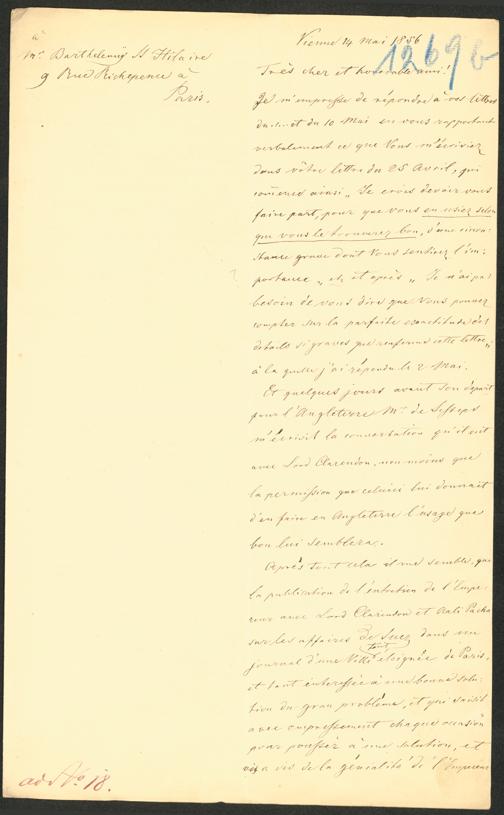 à
Mr. Barthelemy St Hilaire
9 Rue Richepence à
Paris.
Vienne 14 Mai 1856
1269 b
Très cher et honorable ami!
Je m'empresse de répondre à vos lettres
du et du 10 Mai en vous rapportant
verbalement ce que Vous m'écriviez
dans vôtre lettre du 25 Avril, qui
comence ainsi „Je crois devoir vous
faire part, pour que vous en usiez selon
que vous le trouverez bon, d'une circon-
stance grave dont Vous sentirez l'im-
portance „ etc et après „ Je n'ai pas
besoin de vous dire que Vous pouvez
compter sur la parfaite exactitude des
details si graves que renferme cette lettre„
à la quelle j'ai répondu le 2 Mai.
Et quelques jours avant son départ
pour l'Angleterre Mr. de Lesseps
m'écrivit la conversation qu'il eut
avec Lord Clarendon, non moins que
la permission que celuici lui donnait
d'en faire en Angleterre l'usage que
bon lui semblera.
Après tout cela il me semble, que
la publication de l'entretien de l'Empe-
reur avec Lord Clarendon et Aali Pacha
sur les affaires de Suez dans un
journal d'une Ville tant éloignée de Paris,
et tant intéressée à une bonne solu-
tion du gran problême, et qui saisit
avec empressement chaque occasion
pour pousser à une solution, et
vis a vis de la génialité de l'Empereur
ad No 18.